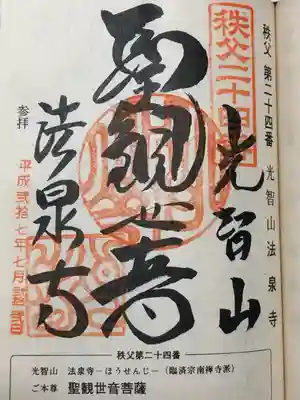 秩父 第二十四番 光智山 法泉寺
秩父二十四番
光智山
聖観世音
法泉寺
参拝
平成弐拾七年七月
秩父第二十四番
光智山 法泉寺-ほうせんじ-(臨済宗南禅寺派)
ご本尊 聖観世音菩薩